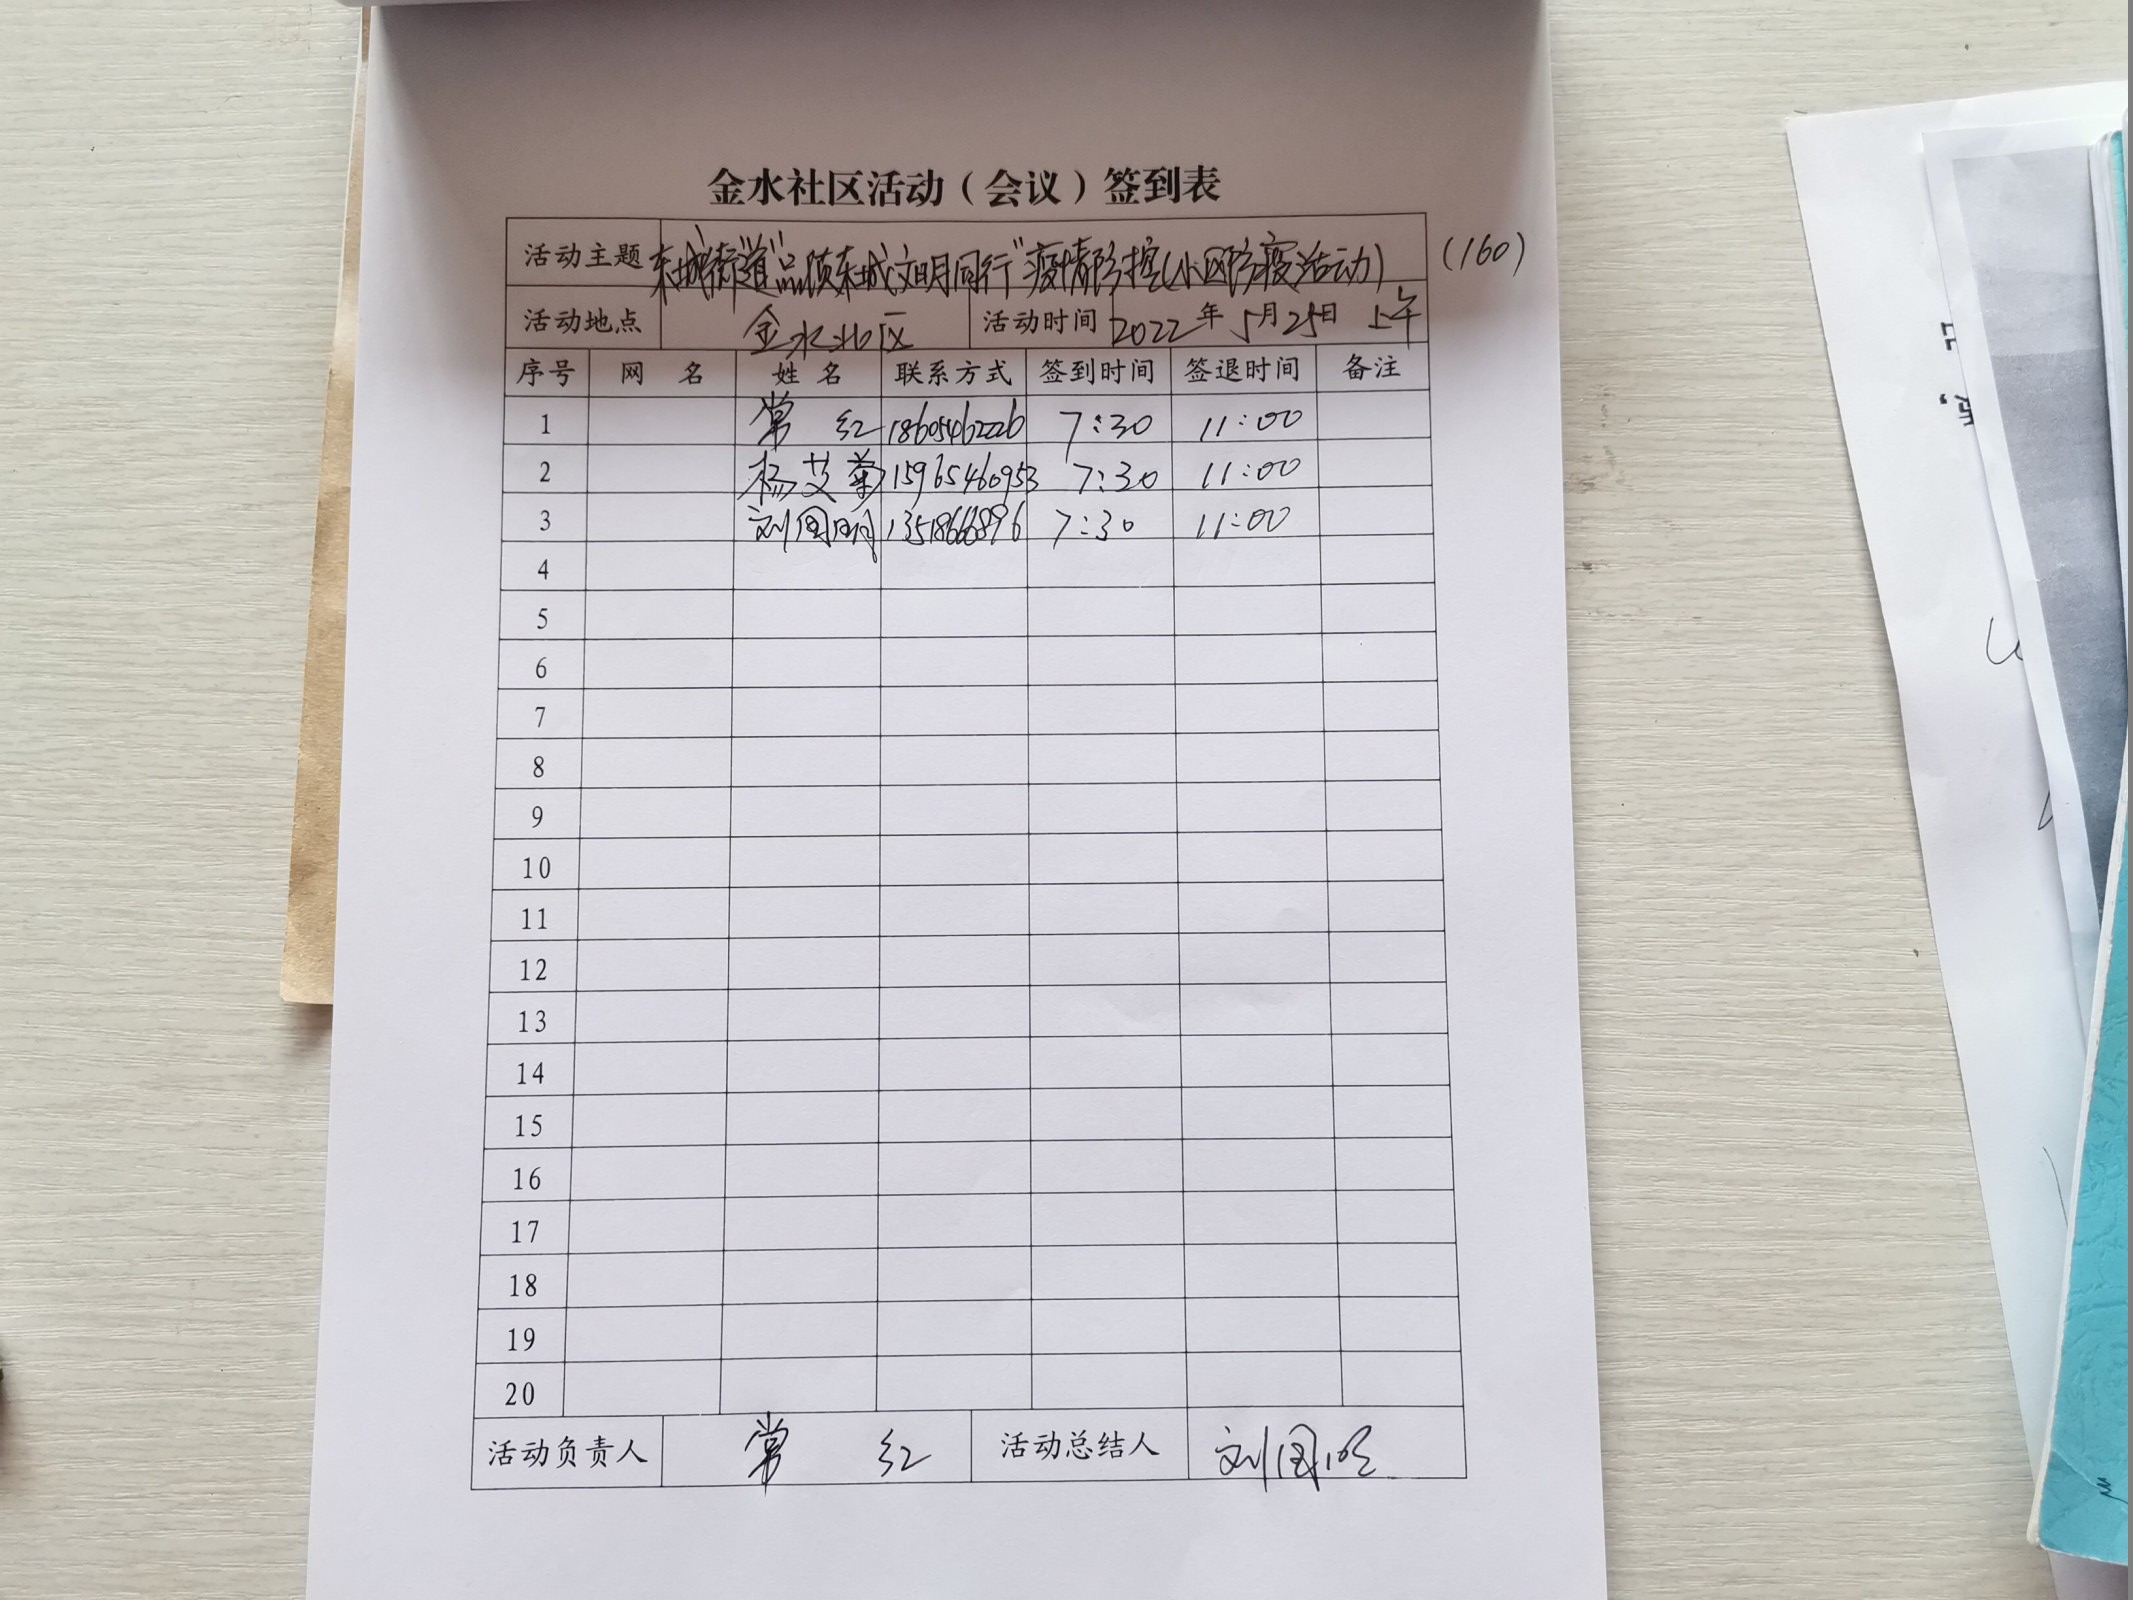 金水社区活动（会议）签到表
活动主题 东城街道"品质东城文明同行"疫情防控(小区防疫活动) (160)
活动地点 金水北区 活动时间 2022年5月25日 上午
序号 网 名 姓 名 联系方式 签到时间 签退时间 备注
1 常 红 18605462226 7:30 11:00
2 杨艾菊 15965460953 7:30 11:00
3 刘国明 7:30 11:00
4
5
6
7
8
9
10
11
12
13
14
15
16
17
18
19
20
活动负责人 常 红 活动总结人 刘国明